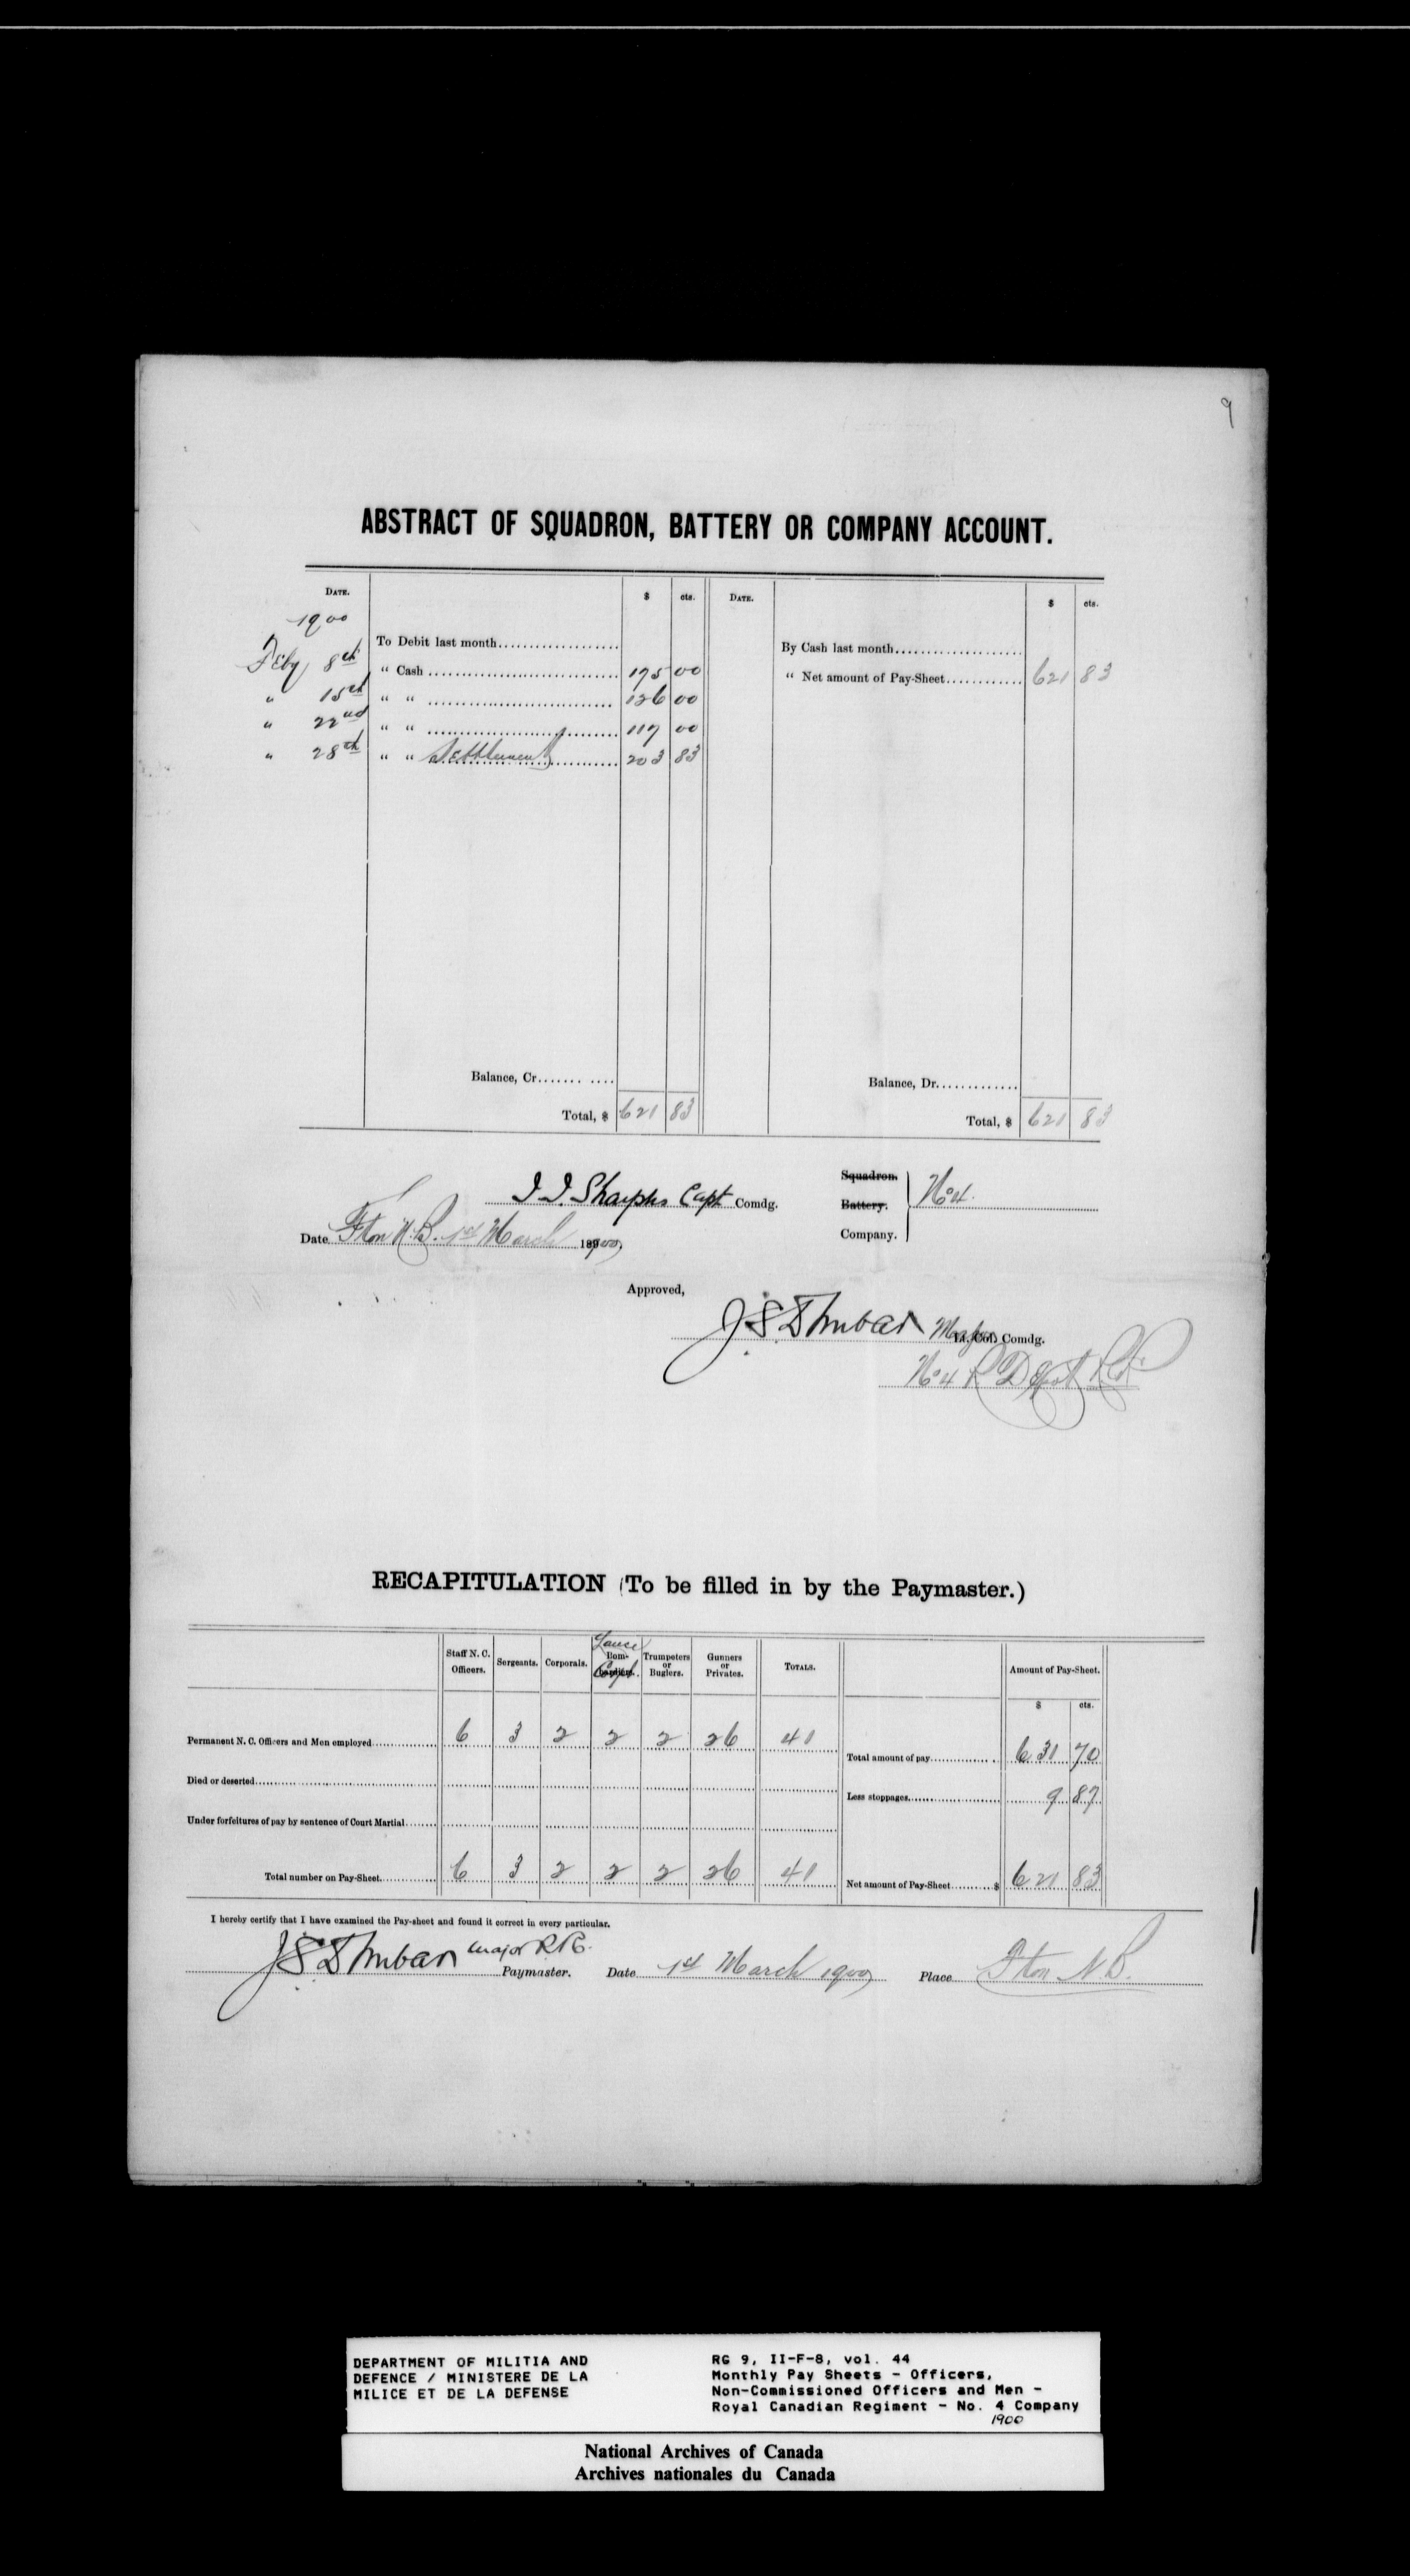 9
ABSTRACT OF SQUADRON, BATTERY OR COMPANY ACCOUNT.
DATE. $ cts. DATE. $ cts.
1900
To Debit last month By Cash last month
Feby 8th " Cash 175 00 " Net amount of Pay-Sheet 621 83
" 15th " " 126 00
" 22nd " " 117 00
" 28th " " Settlement 203 83
Balance, Cr. Balance, Dr.
Total, $ 621 83 Total, $ 621 83
Squadron.
Capt Comdg. Battery. No 4.
Date Fton N.B. 1st March 1900, Company.
Approved,
Major Lt. Col. Comdg.
No 4 R. Depot
RECAPITULATION (To be filled in by the Paymaster.)
Staff N. C. Officers. Sergeants. Corporals. Lance Corpl. Bombardiers. Trumpeters or Buglers. Gunners or Privates. TOTALS. Amount of Pay-Sheet.
$ cts.
Permanent N. C. Officers and Men employed 6 3 2 2 2 26 41 Total amount of pay 631 70
Died or deserted Less stoppages 9 87
Under forfeitures of pay by sentence of Court Martial
Total number on Pay-Sheet 6 3 2 2 2 26 41 Net amount of Pay-Sheet $ 621 83
I hereby certify that I have examined the Pay-sheet and found it correct in every particular.
Major Paymaster. Date 1st March 1900 Place Fton N.B.
DEPARTMENT OF MILITIA AND
DEFENCE / MINISTERE DE LA
MILICE ET DE LA DEFENSE
RG 9, II-F-8, vol. 44
Monthly Pay Sheets - Officers,
Non-Commissioned Officers and Men -
Royal Canadian Regiment - No. 4 Company
1900
National Archives of Canada
Archives nationales du Canada